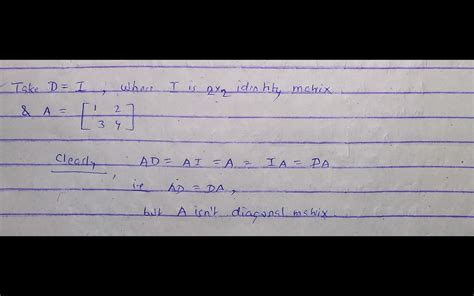 Take D = I , where I is 2x2 identity matrix.
& A = [1 2
3 4]
Clearly, AD = AI = A = IA = DA
ie AD = DA,
but A isn't diagonal matrix.